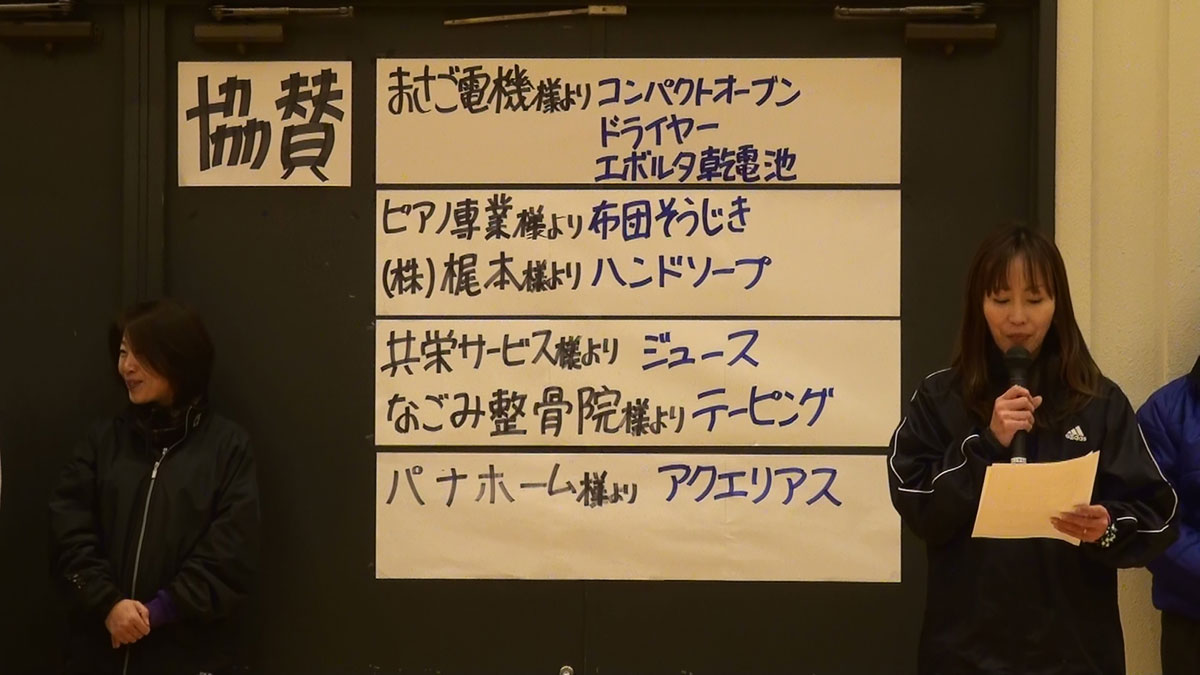 協賛
まさご電機様よりコンパクトオーブン
ドライヤー
エボルタ乾電池
ピアノ専業様より布団そうじき
(株)梶本様よりハンドソープ
共栄サービス様より ジュース
なごみ整骨院様よりテーピング
パナホーム様より アクエリアス
adidas